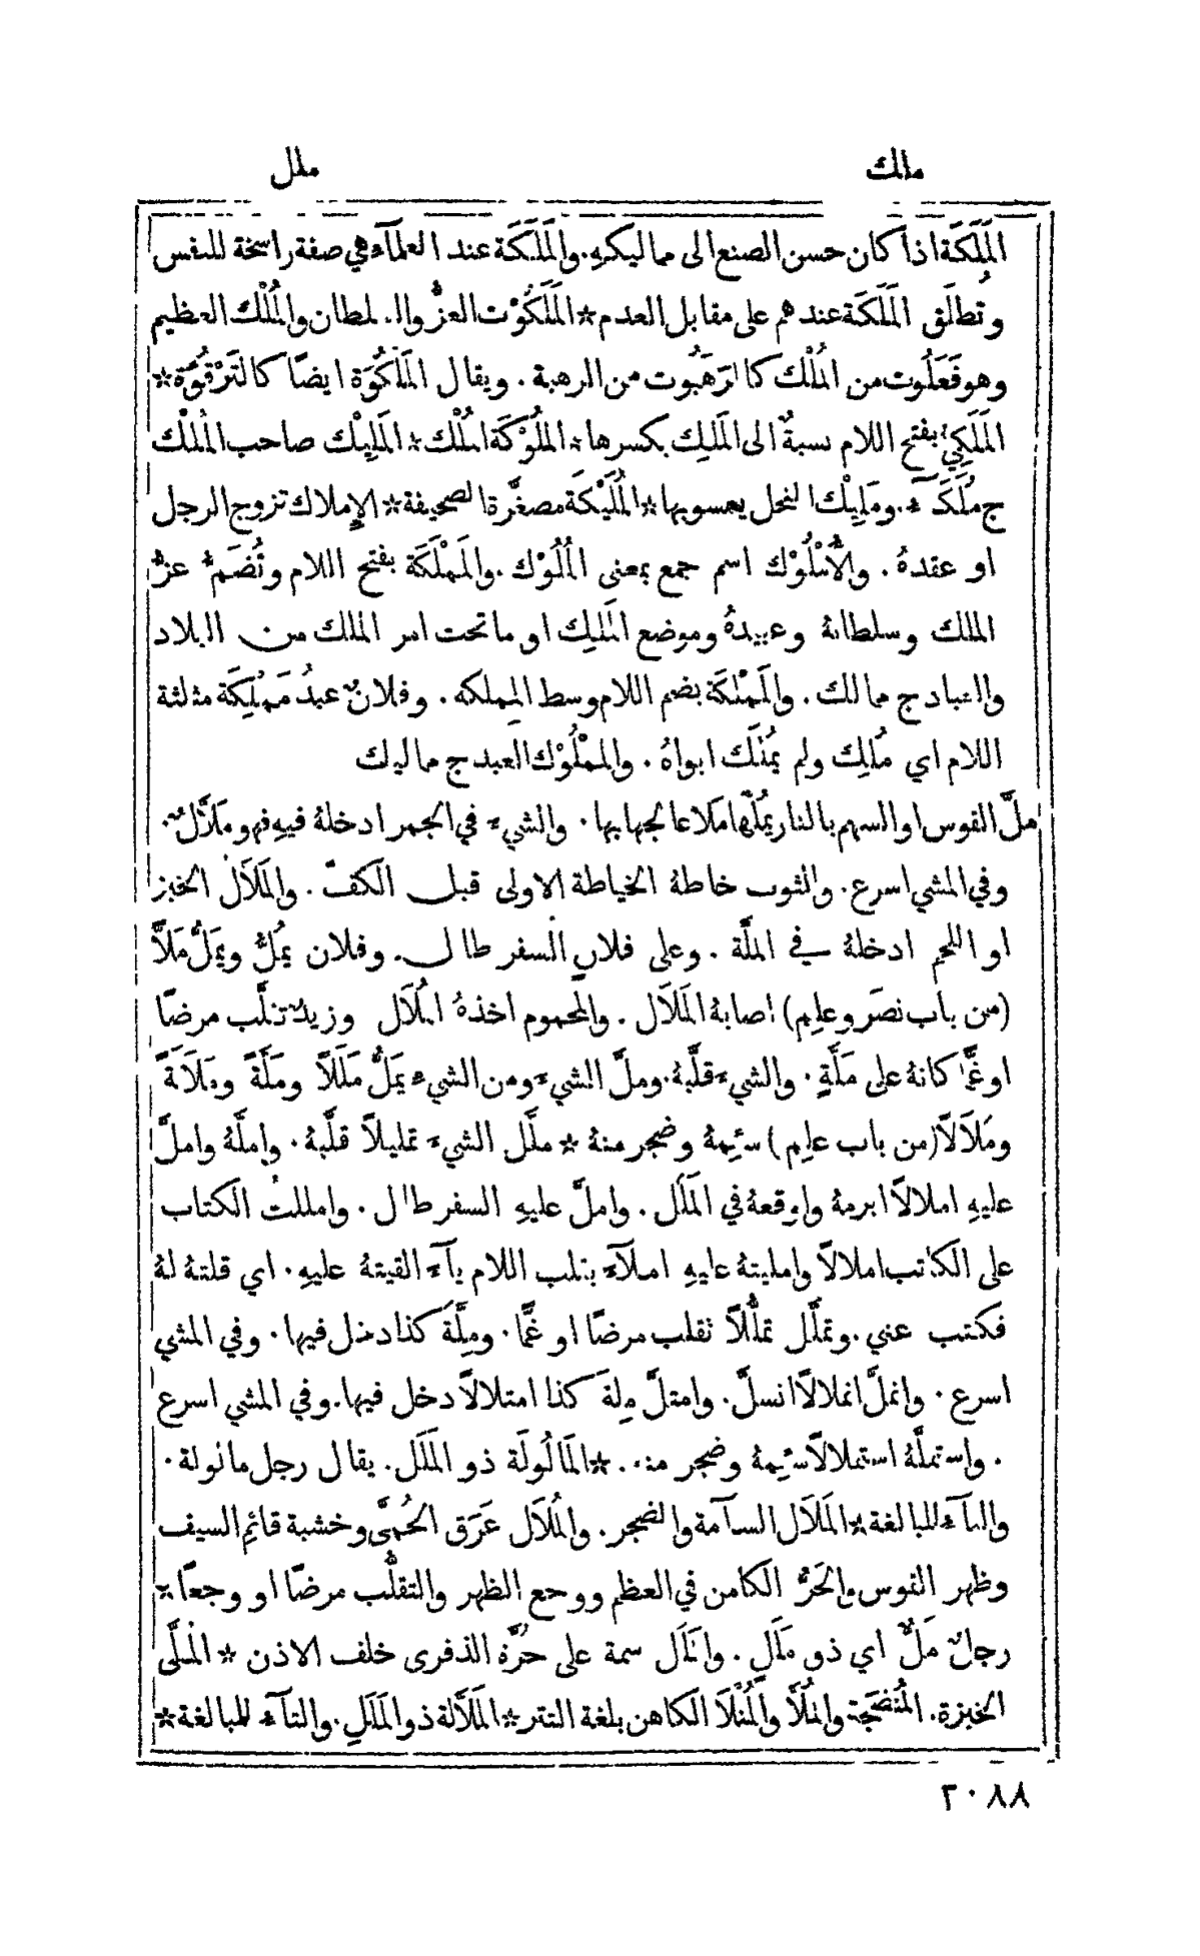 ملك
ملل
المَلَكَة اذا كان حسن الصنع الى مماليكهِ. والمَلَكَة عند العلمآء هي صفة راسخة للنفس
وتُطلَق المَلَكَة عندهم على مقابل العدم * المَلَكُوْت العزُّ والسلطان والمُلْك العظيم
وهو فَعَلُوت من المُلْك كالرَهَبُوت من الرهبة. ويقال المَلْكُوَة ايضًا كالتَرْقُوَة *
المَلَكِيُّ بفتح اللام نسبةٌ الى المَلِك بكسرها * المُلُوْكَة المُلْك * المَلِيْك صاحب المُلْك
ج مُلَكَآء. ومَلِيْك النحل يعسوبها * المُلَيْكَة مصغَّرة الصحيفة * الإملاك تزوج الرجل
او عقدهُ. والأُمْلُوْك اسم جمع بمعنى المُلُوْك. والمَمْلَكَة بفتح اللام وتُضَمُّ عزُّ
الملك وسلطانهُ وعبيدهُ وموضع المَلِك او ما تحت امر الملك من البلاد
والعباد ج ممالك. والمَمْلُكَة بضم اللام وسط المملكه. وفلانٌ عبدُ مَمْلِكَة مثلثة
اللام اي مُلِك ولم يُمْلَك ابواهُ. والمَمْلُوْك العبد ج مماليك
ملَّ القوس او السهم بالنار يمُلُّها مَلاًّ عالجها بها. والشيءَ في الجمر ادخلهُ فيهِ فهو مَلاَّلٌ.
وفي المشي اسرع. والثوب خاطهُ الخياطة الاولى قبل الكفّ. والمَلاَل الخبز
او اللحم ادخلهُ في الملَّة. وعلى فلانٍ السفر طال. وفلان يمُلُّ ويمَلُّ مَلاًّ
(من باب نصَر وعلِم) اصابهُ المَلاَل. والمحموم اخذهُ المُلاَل وزيدٌ تقلَّب مرضًا
او غمًّا كانهُ على مَلَّةٍ. والشيءَ قلَّبهُ. وملَّ الشيءَ ومن الشيء يمَلُّ مَلَلاً ومَلَّةً ومَلاَلَةً
ومَلاَلاً (من باب علِم) سئِمهُ وضجر منهُ * ملَّل الشيءَ تمليلاً قلَّبهُ. وامَلَّهُ واملَّ
عليهِ املالاً ابرمهُ واوقعهُ في المَلَل. واملَّ عليهِ السفر طال. وامللتُ الكتاب
على الكاتب املالاً وامليتهُ عليهِ املآءً بقلب اللام يآءً القيتهُ عليهِ. اي قلتهُ لهُ
فكتب عني. وتملَّل تملُّلاً تقلب مرضًا او غمًّا. ومِلَّةَ كذا دخل فيها. وفي المشي
اسرع. وانملَّ انملالاً انسلَّ. وامتلَّ مِلة كذا امتلالاً دخل فيها. وفي المشي اسرع
. واستملَّهُ استملالاً سئِمهُ وضجر منهُ. * المَالُولَة ذو المَلَل. يقال رجل مالولة.
والتآء للمبالغة * المَلاَل السآمة والضجر. والمُلاَل عَرَق الحُمَّى وخشبة قائِم السيف
وظهر القوس والحَرُّ الكامن في العظم ووجع الظهر والتقلُّب مرضًا او وجعًا *
رجلٌ مَلٌّ اي ذو مَلَلٍ. والمَلَل سمة على حُرَّة الذفرى خلف الاذن * المَلَّى
الخبزة. المُنْضَجَة والمُلاَّ والمُنْلاَ الكاهن بلغة التتر * المَلاَّلة ذو المَلَلِ. والتآء للمبالغة *
٢٠٨٨